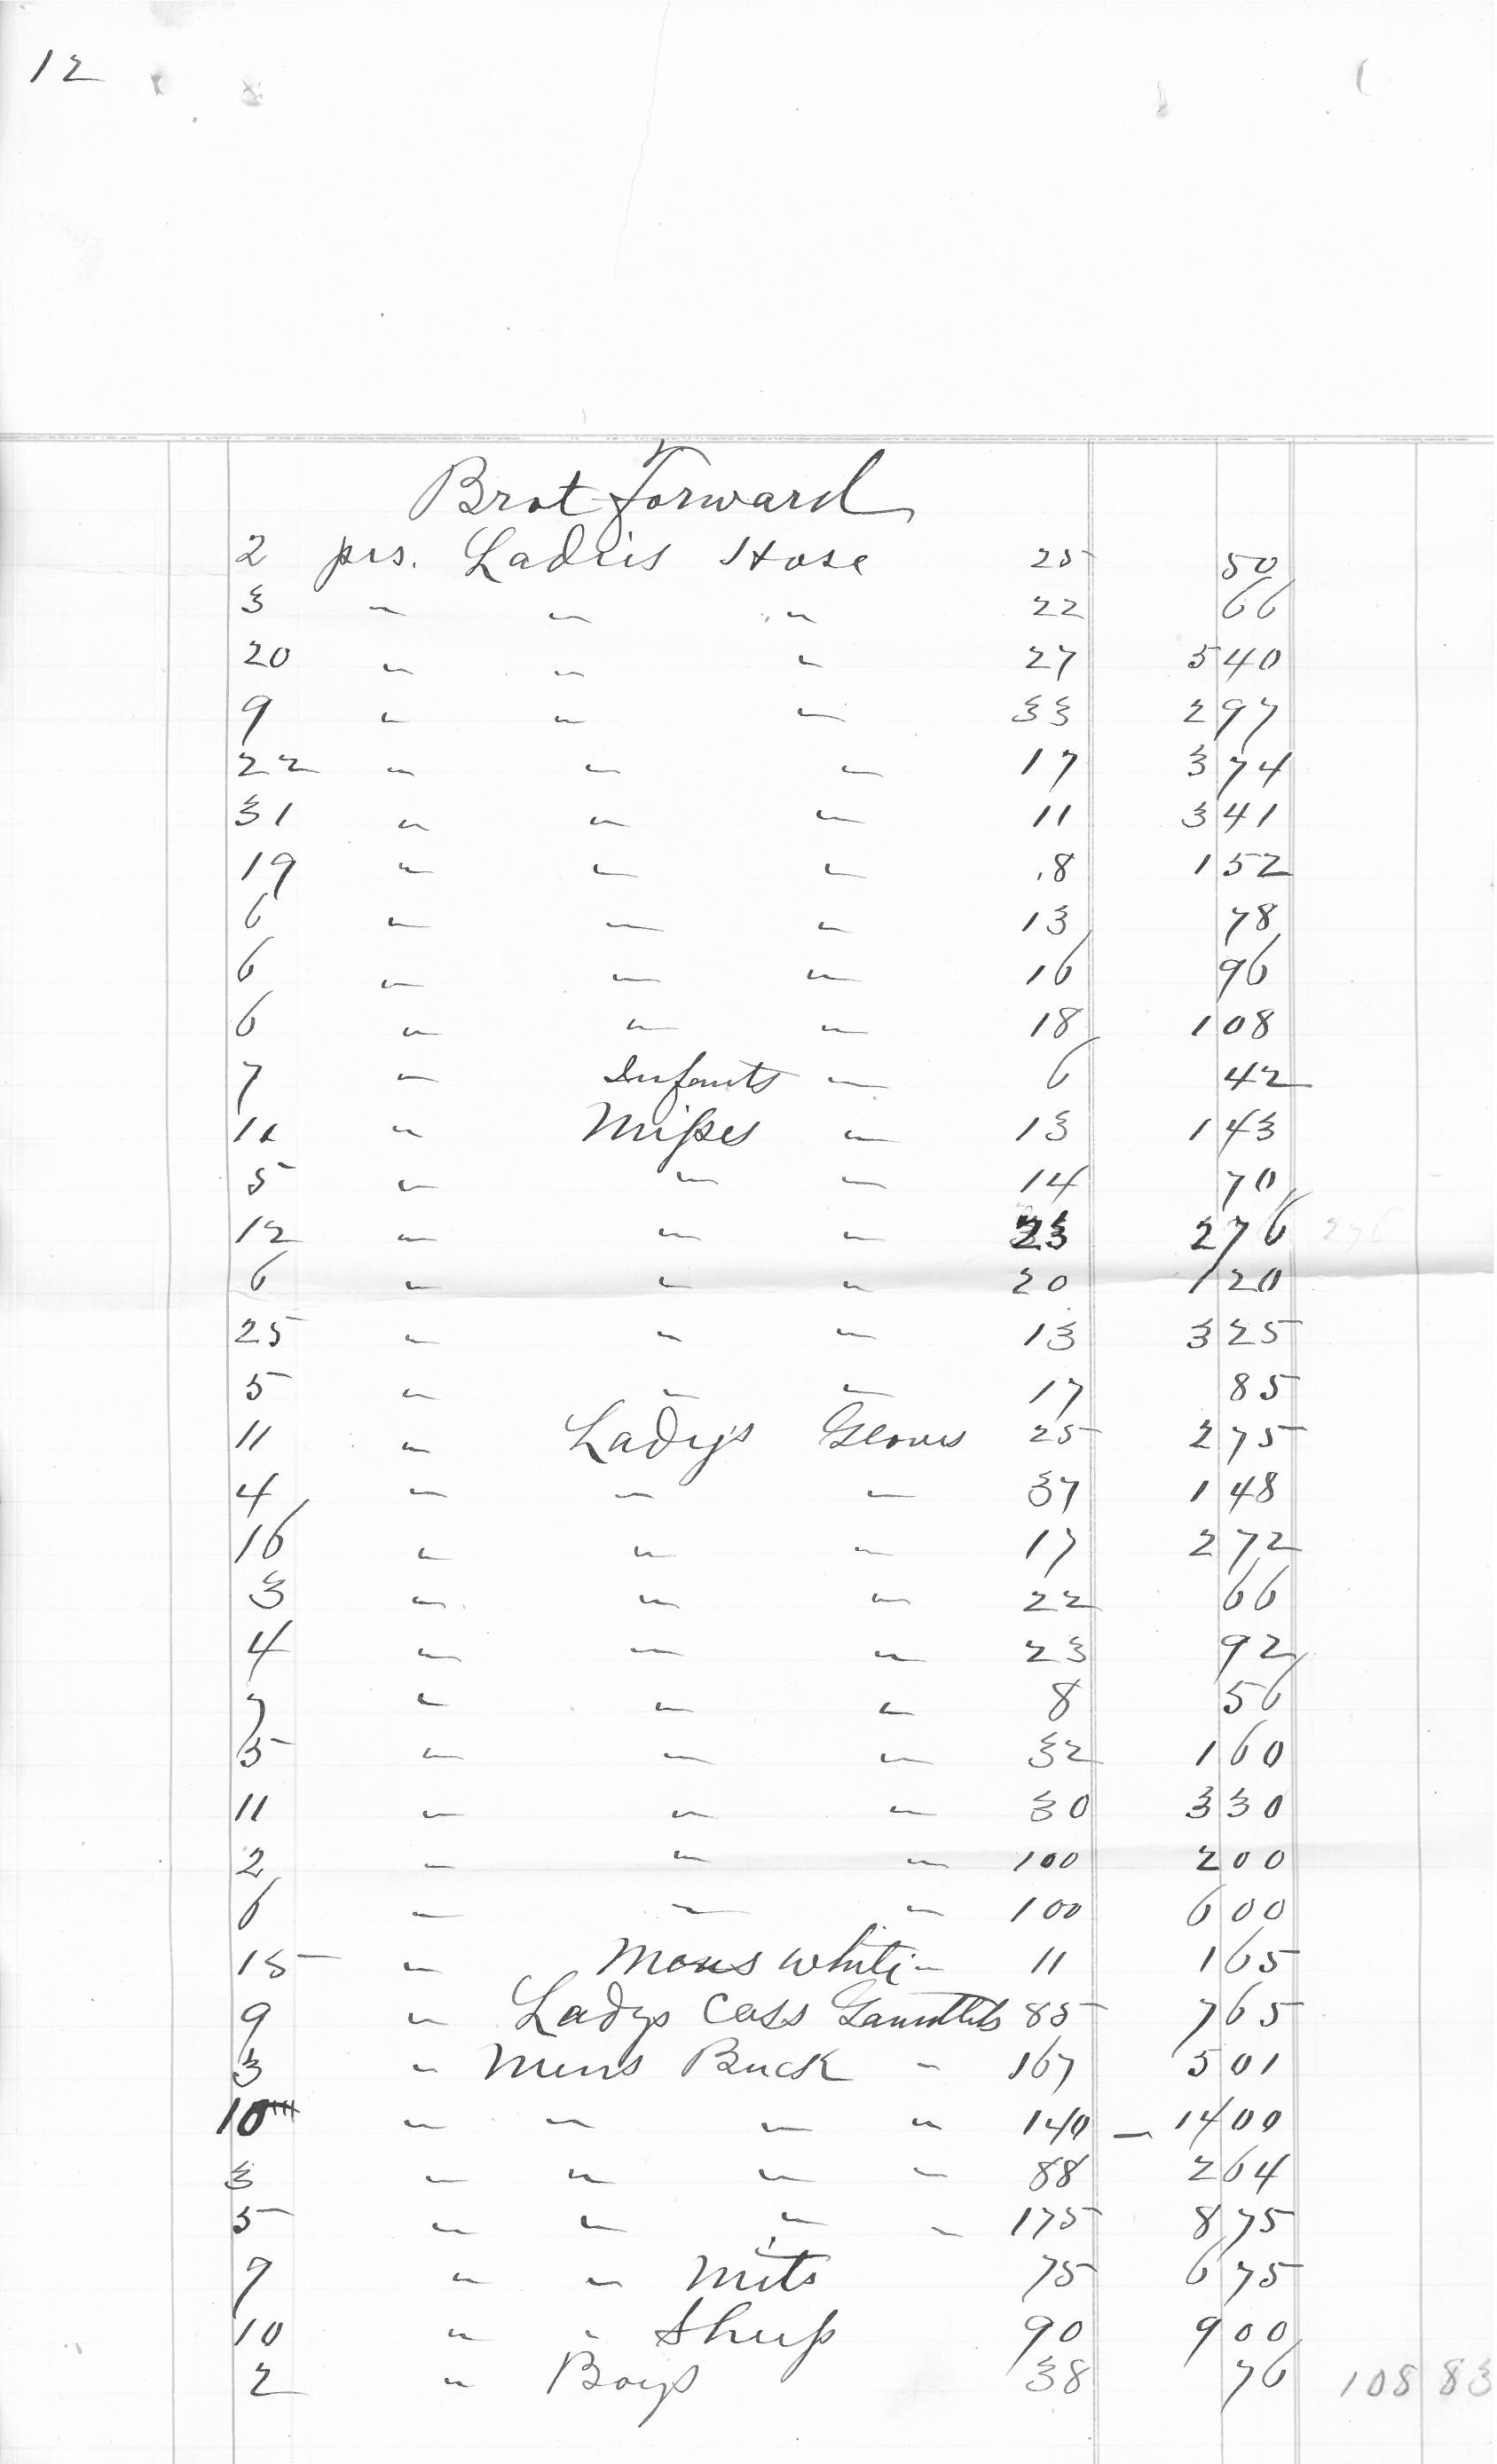 12
Brot Forward
2 prs. Ladies Hose 25 50
3 " " " 22 66
20 " " " 27 5 40
9 " " " 33 2 97
22 " " " 17 3 74
31 " " " 11 3 41
19 " " " .8 1 52
6 " " " 13 78
6 " " " 16 96
6 " " " 18 1 08
7 " Infants " 6 42
11 " Misses " 13 1 43
5 " " " 14 70
12 " " " 23 2 76 276
6 " " " 20 1 20
25 " " " 13 3 25
5 " " " 17 85
11 " Lady's Gloves 25 2 75
4 " " " 37 1 48
16 " " " 17 2 72
3 " " " 22 66
4 " " " 23 92
7 " " " 8 56
5 " " " 32 1 60
11 " " " 30 3 30
2 " " " 100 2 00
6 " " " 100 6 00
15 " Mens white " 11 1 65
9 " Ladys Cass Gauntlets 85 7 65
3 " Mens Buck " 167 5 01
10 " " " " 140 – 14 00
3 " " " " 88 2 64
5 " " " " 175 8 75
9 " " Mits 75 6 75
10 " " Sheep 90 9 00
2 " Boys 38 76 108 83